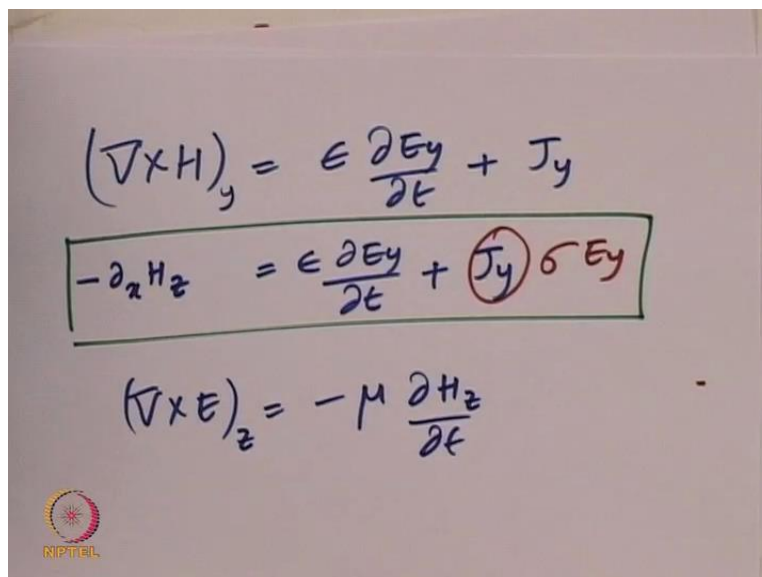 (∇×H)y = ϵ ∂Ey/∂t + Jy
-∂xHz = ϵ ∂Ey/∂t + Jy σEy
(∇×E)z = -μ ∂Hz/∂t
NPTEL